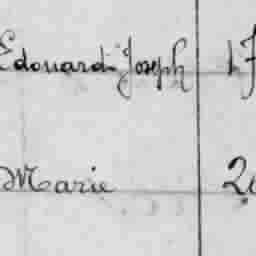 Edouard Joseph
Marie